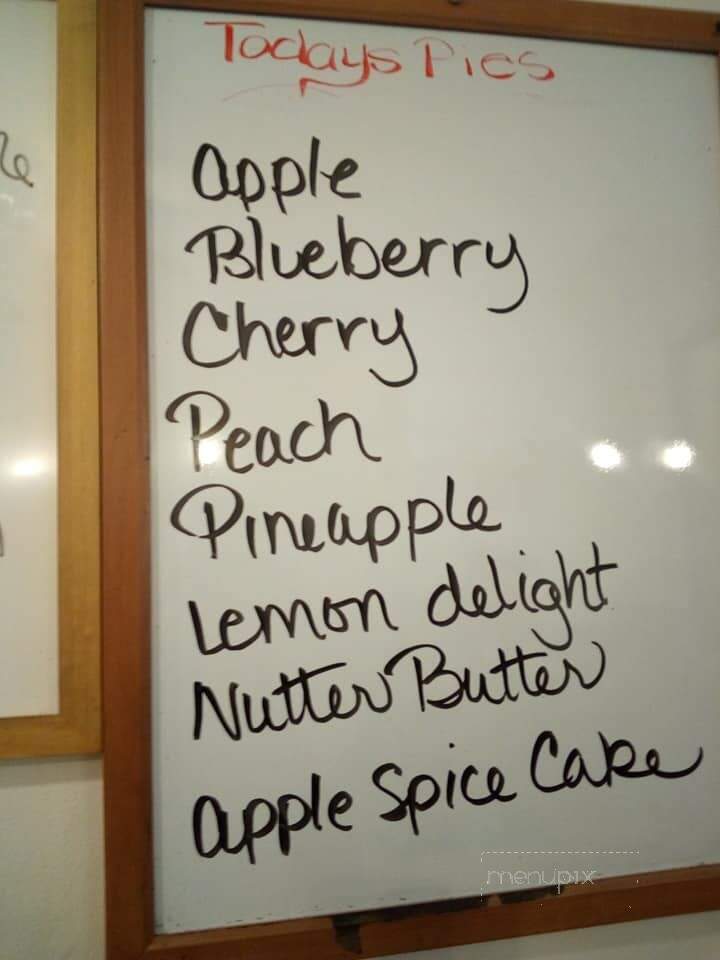 Todays Pies
apple
Blueberry
Cherry
Peach
Pineapple
Lemon delight
Nutter Butter
apple Spice Cake
menupix